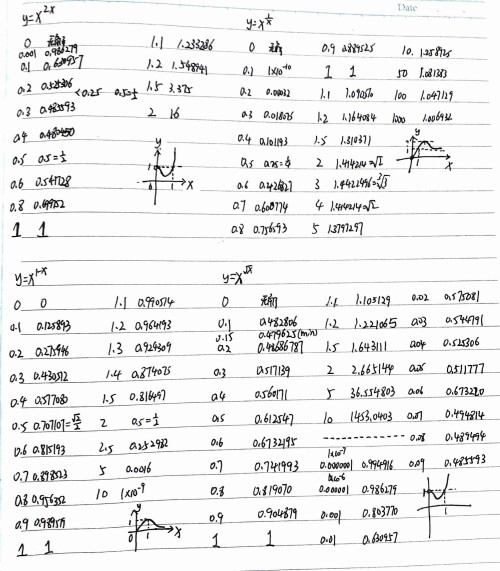 Date
y=x^2x
0 无意义
0.001 0.986279
0.1 0.630957
0.2 0.525306
0.3 0.485593
<0.25 0.5=½
0.4 0.480450
0.5 0.5=½
0.6 0.541728
0.8 0.699752
1 1
1.1 1.233286
1.2 1.548941
1.5 3.375
2 16
y
1
0 1 x
y=x^1/x
0 无意义
0.1 1×10^-10
0.2 0.00032
0.3 0.018075
0.4 0.101193
0.5 0.25=¼
0.6 0.426827
0.7 0.600774
0.8 0.756593
0.9 0.889525
1 1
1.1 1.090510
1.2 1.164084
1.5 1.310371
2 1.414214=√2
3 1.4422496=³√3
4 1.414214=√2
5 1.3797297
10 1.258925
50 1.081383
100 1.047129
1000 1.006932
y
1
0 1 x
y=x^1-x
0 0
0.1 0.125893
0.2 0.275946
0.3 0.430512
0.4 0.577080
0.5 0.707107=√2/2
0.6 0.815193
0.7 0.898523
0.8 0.956352
0.9 0.989519
1 1
1.1 0.990514
1.2 0.964193
1.3 0.924309
1.4 0.874075
1.5 0.816497
2 0.5=½
2.5 0.252982
5 0.0016
10 1×10^-9
y
1
0 1 x
y=x^√x
0 无意义
0.1 0.482806
0.15 0.479625(min)
0.2 0.48686787
0.3 0.517139
0.4 0.560171
0.5 0.612547
0.6 0.6732195
0.7 0.741993
0.8 0.819070
0.9 0.904879
1 1
1.1 1.105129
1.2 1.221065
1.5 1.643111
2 2.665144
5 36.554803
10 1453.0403
1×10^-7
0.000001 0.994916
1×10^-6
0.00001 0.986279
0.001 0.803770
0.01 0.630957
0.02 0.575081
0.03 0.544791
0.04 0.525306
0.05 0.511777
0.06 0.673220
0.07 0.494814
0.08 0.489494
0.09 0.485593
1
1